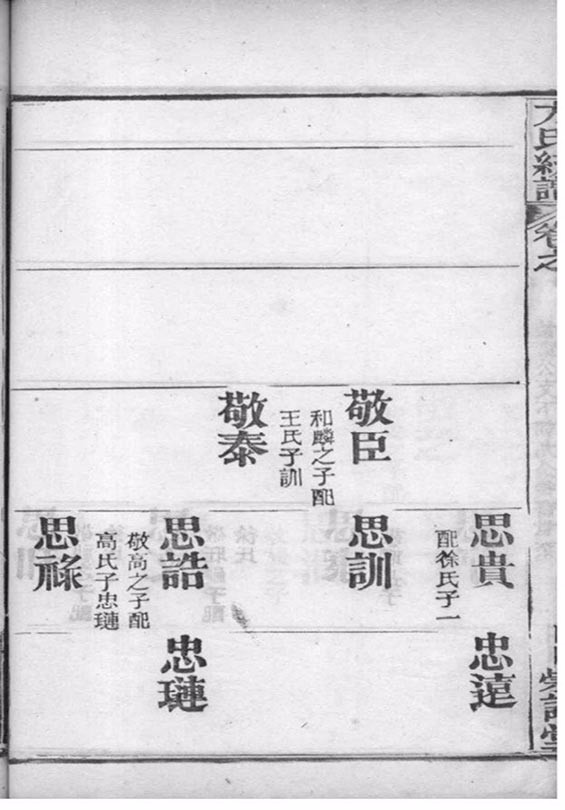 卷之
敬臣
和麟之子配
王氏子訓
敬泰
思貴
配徐氏子一
思訓
思誥
敬高之子配
高氏子忠璉
思祿
忠遠
忠璉